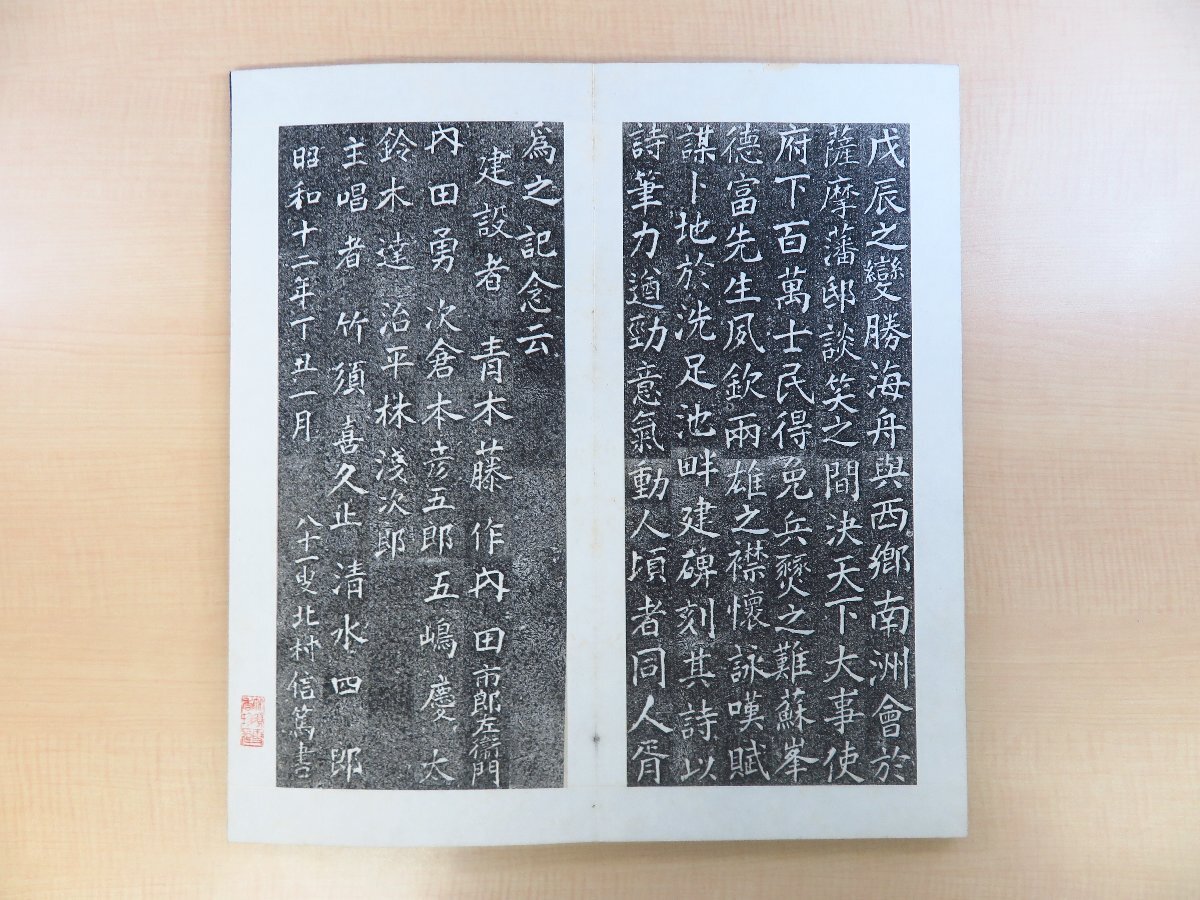 戊辰之變勝海舟與西鄉南洲會於
薩摩藩邸談笑之間決天下大事使
府下百萬士民得免兵燹之難蘇峯
德富先生夙欽兩雄之襟懷詠嘆賦
詩筆力遒勁意氣動人頃者同人胥
謀卜地於洗足池畔建碑刻其詩以
爲之記念云
建設者 青木藤作 內田市郎左衞門
內田勇次 倉本彥五郎 五嶋慶大
鈴木達治 平林淺次郎
主唱者 竹須喜久止 清水四郎
昭和十二年丁丑一月 八十一叟北村信篤書